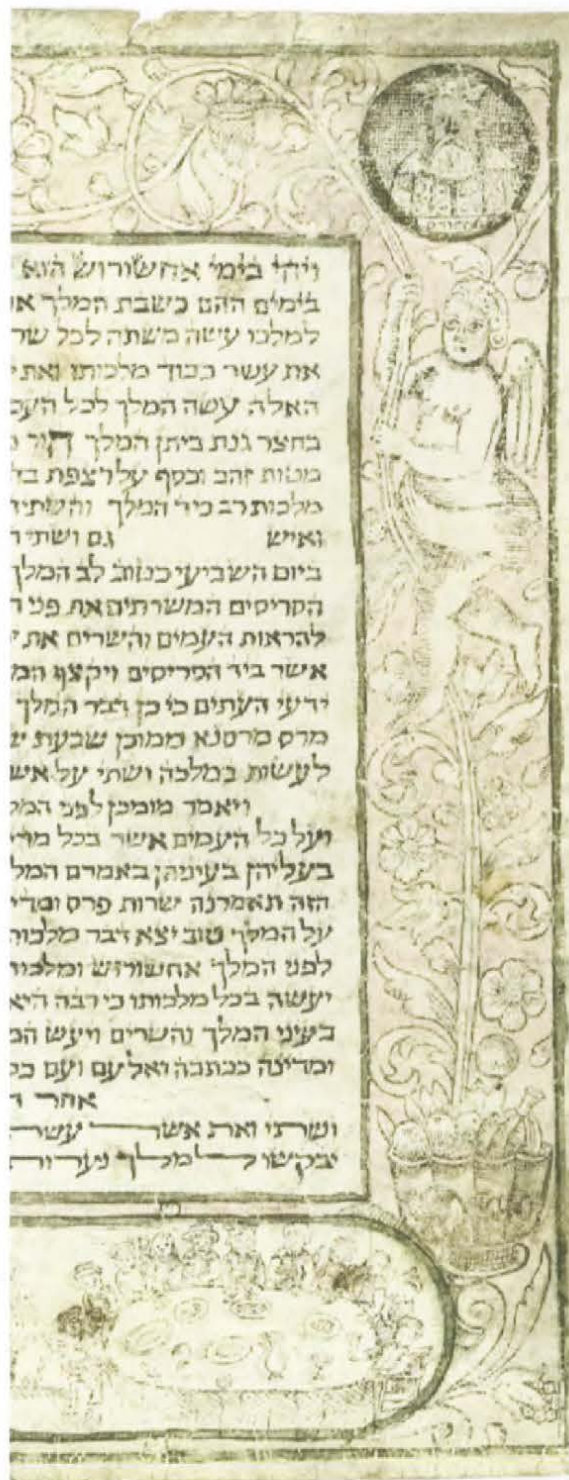 ויהי בימי אחשורוש הוא
בימים ההם כשבת המלך
למלכו עשה משתה לכל שר
את עשר כבוד מלכותו ואת
האלה עשה המלך לכל העם
בחצר גנת ביתן המלך חור
מטות זהב וכסף על רצפת
מלכות רב כיד המלך והשתיה
ואיש גם ושתי
ביום השביעי כטוב לב המלך
הסריסים המשרתים את פני
להראות העמים והשרים את
אשר ביד הסריסים ויקצף המ
ידעי העתים כי כן דבר המלך
מרס מרסנא ממוכן שבעת
לעשות במלכה ושתי על אש
ויאמר מומכן לפני המל
ועל כל העמים אשר בכל מדי
בעליהן בעיניהן באמרם המל
הזה תאמרנה שרות פרס ומדי
על המלך טוב יצא דבר מלכות
לפני המלך אחשורוש ומלכות
יעשה בכל מלכותו כי רבה היא
בעיני המלך והשרים ויעש המ
ומדינה ככתבה ואל עם ועם
אחר
ושתי ואת אשר עשת
יבקשו למלך נערות